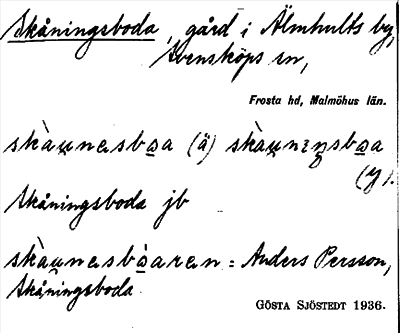 Skåningsboda, gård i Älmhults by,
Svensköps sn,
Frosta hd, Malmöhus län.
skàu̯nɐsbo̲a (ä) skàu̯nɪŋsbo̲a
(y).
Skåningsboda jb
skàu̯nɐsbò̲arɐn = Anders Persson,
Skåningsboda.
GÖSTA SJÖSTEDT 1936.